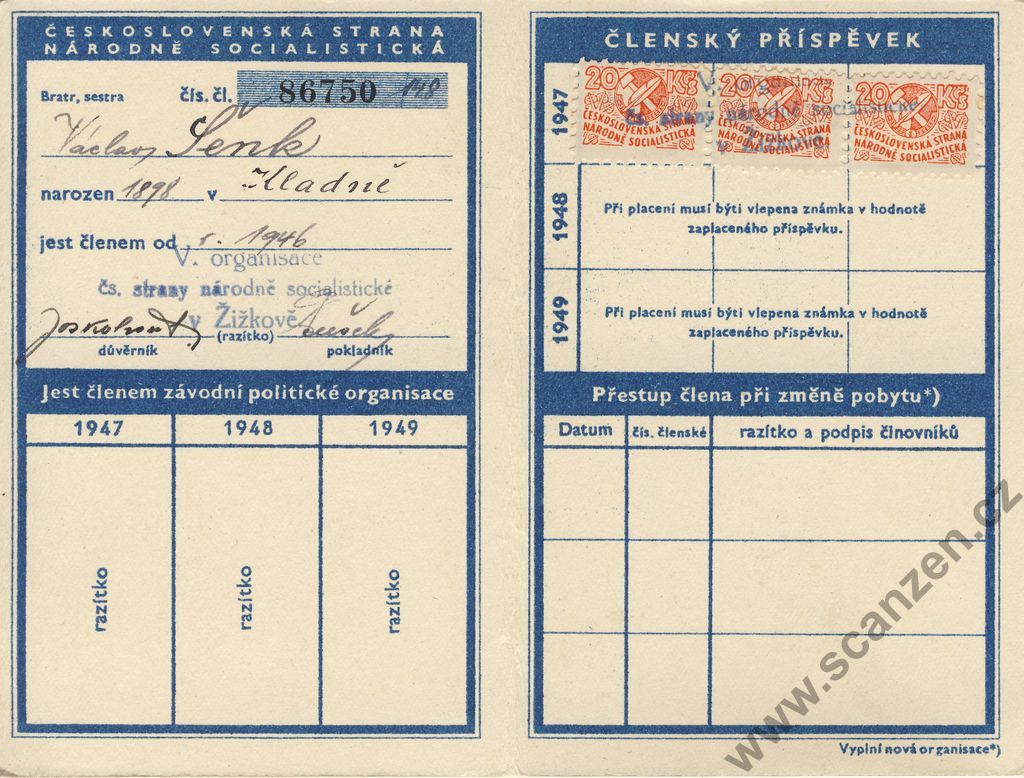 ČESKOSLOVENSKÁ STRANA
NÁRODNĚ SOCIALISTICKÁ
Bratr, sestra čís. čl. 86750
Václav Šenk
narozen 1898 v Kladně
jest členem od r. 1946
V. organisace
čs. strany národně socialistické
v Žižkově
důvěrník (razítko) pokladník
Jest členem závodní politické organisace
1947 1948 1949
razítko razítko razítko
ČLENSKÝ PŘÍSPĚVEK
1947
20 Kčs 20 Kčs 20 Kčs
ČESKOSLOVENSKÁ STRANA NÁRODNĚ SOCIALISTICKÁ
ČESKOSLOVENSKÁ STRANA NÁRODNĚ SOCIALISTICKÁ
ČESKOSLOVENSKÁ STRANA NÁRODNĚ SOCIALISTICKÁ
V. organisace
čs. strany národně socialistické
v Žižkově
1948
Při placení musí býti vlepena známka v hodnotě
zaplaceného příspěvku.
1949
Při placení musí býti vlepena známka v hodnotě
zaplaceného příspěvku.
Přestup člena při změně pobytu*)
Datum čís. členské razítko a podpis činovníků
Vyplní nová organisace*)
www.scanzen.cz